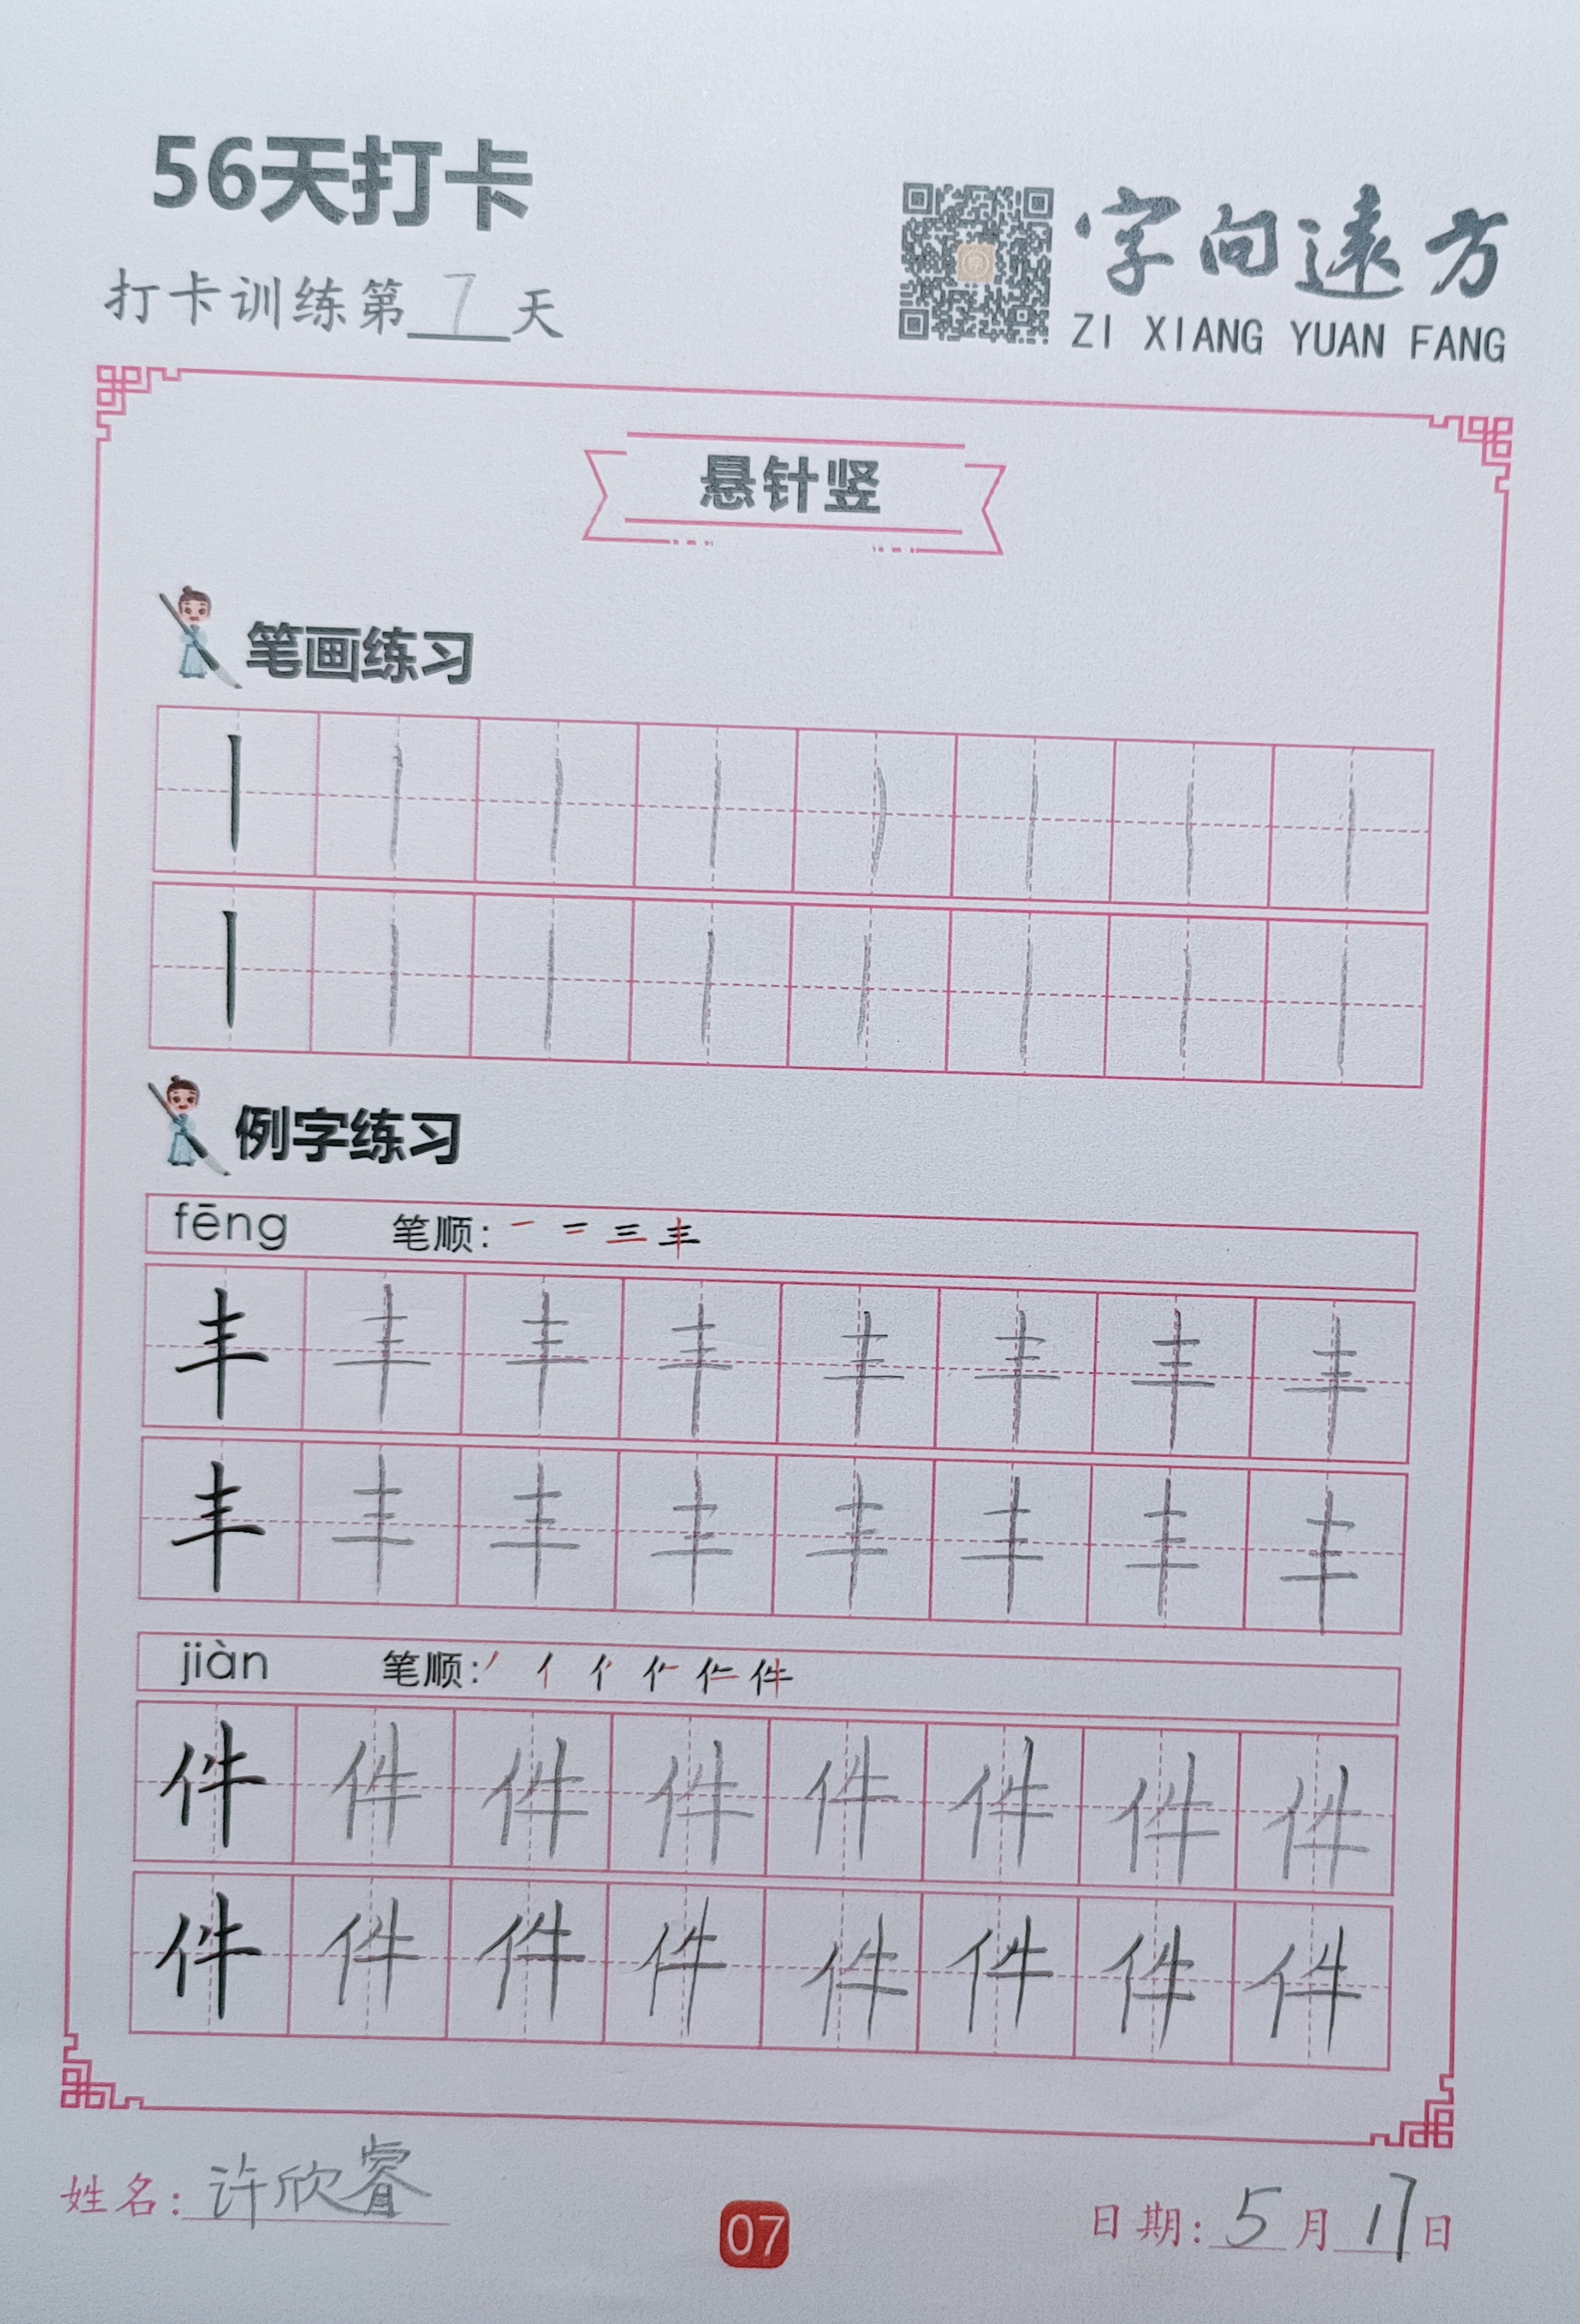 56天打卡
打卡训练第7天
字向遠方
ZI XIANG YUAN FANG
悬针竖
笔画练习
例字练习
fēng 笔顺: 一 二 三 丰
丰 丰 丰 丰 丰 丰 丰 丰
丰 丰 丰 丰 丰 丰 丰 丰
jiàn 笔顺: 件
件 件 件 件 件 件 件 件
件 件 件 件 件 件 件 件
姓名: 许欣睿
07
日期: 5月17日